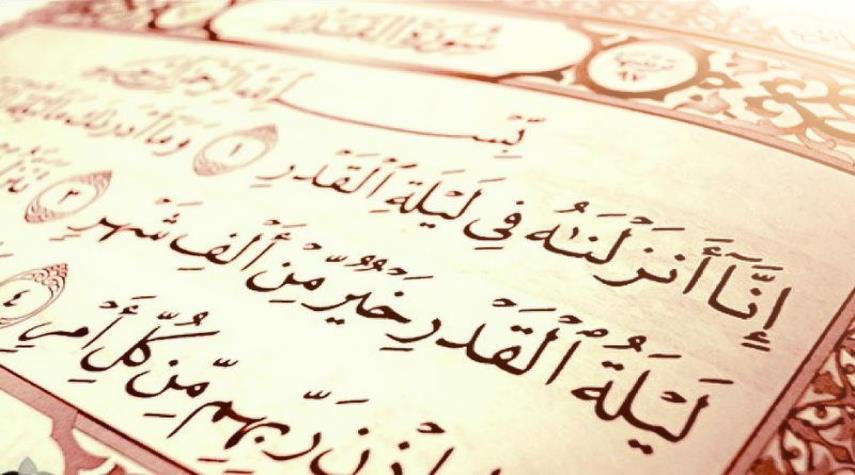 سُورَةُ الْقَدْرِ
بِسْمِ اللَّهِ الرَّحْمَٰنِ الرَّحِيمِ
إِنَّآ أَنزَلْنَٰهُ فِي لَيْلَةِ ٱلْقَدْرِ ١ وَمَآ أَدْرَىٰكَ مَا لَيْلَةُ
لَيْلَةُ ٱلْقَدْرِ خَيْرٌ مِّنْ أَلْفِ شَهْرٍ ٣
رَبِّهِم مِّن كُلِّ أَمْرٍ ٤